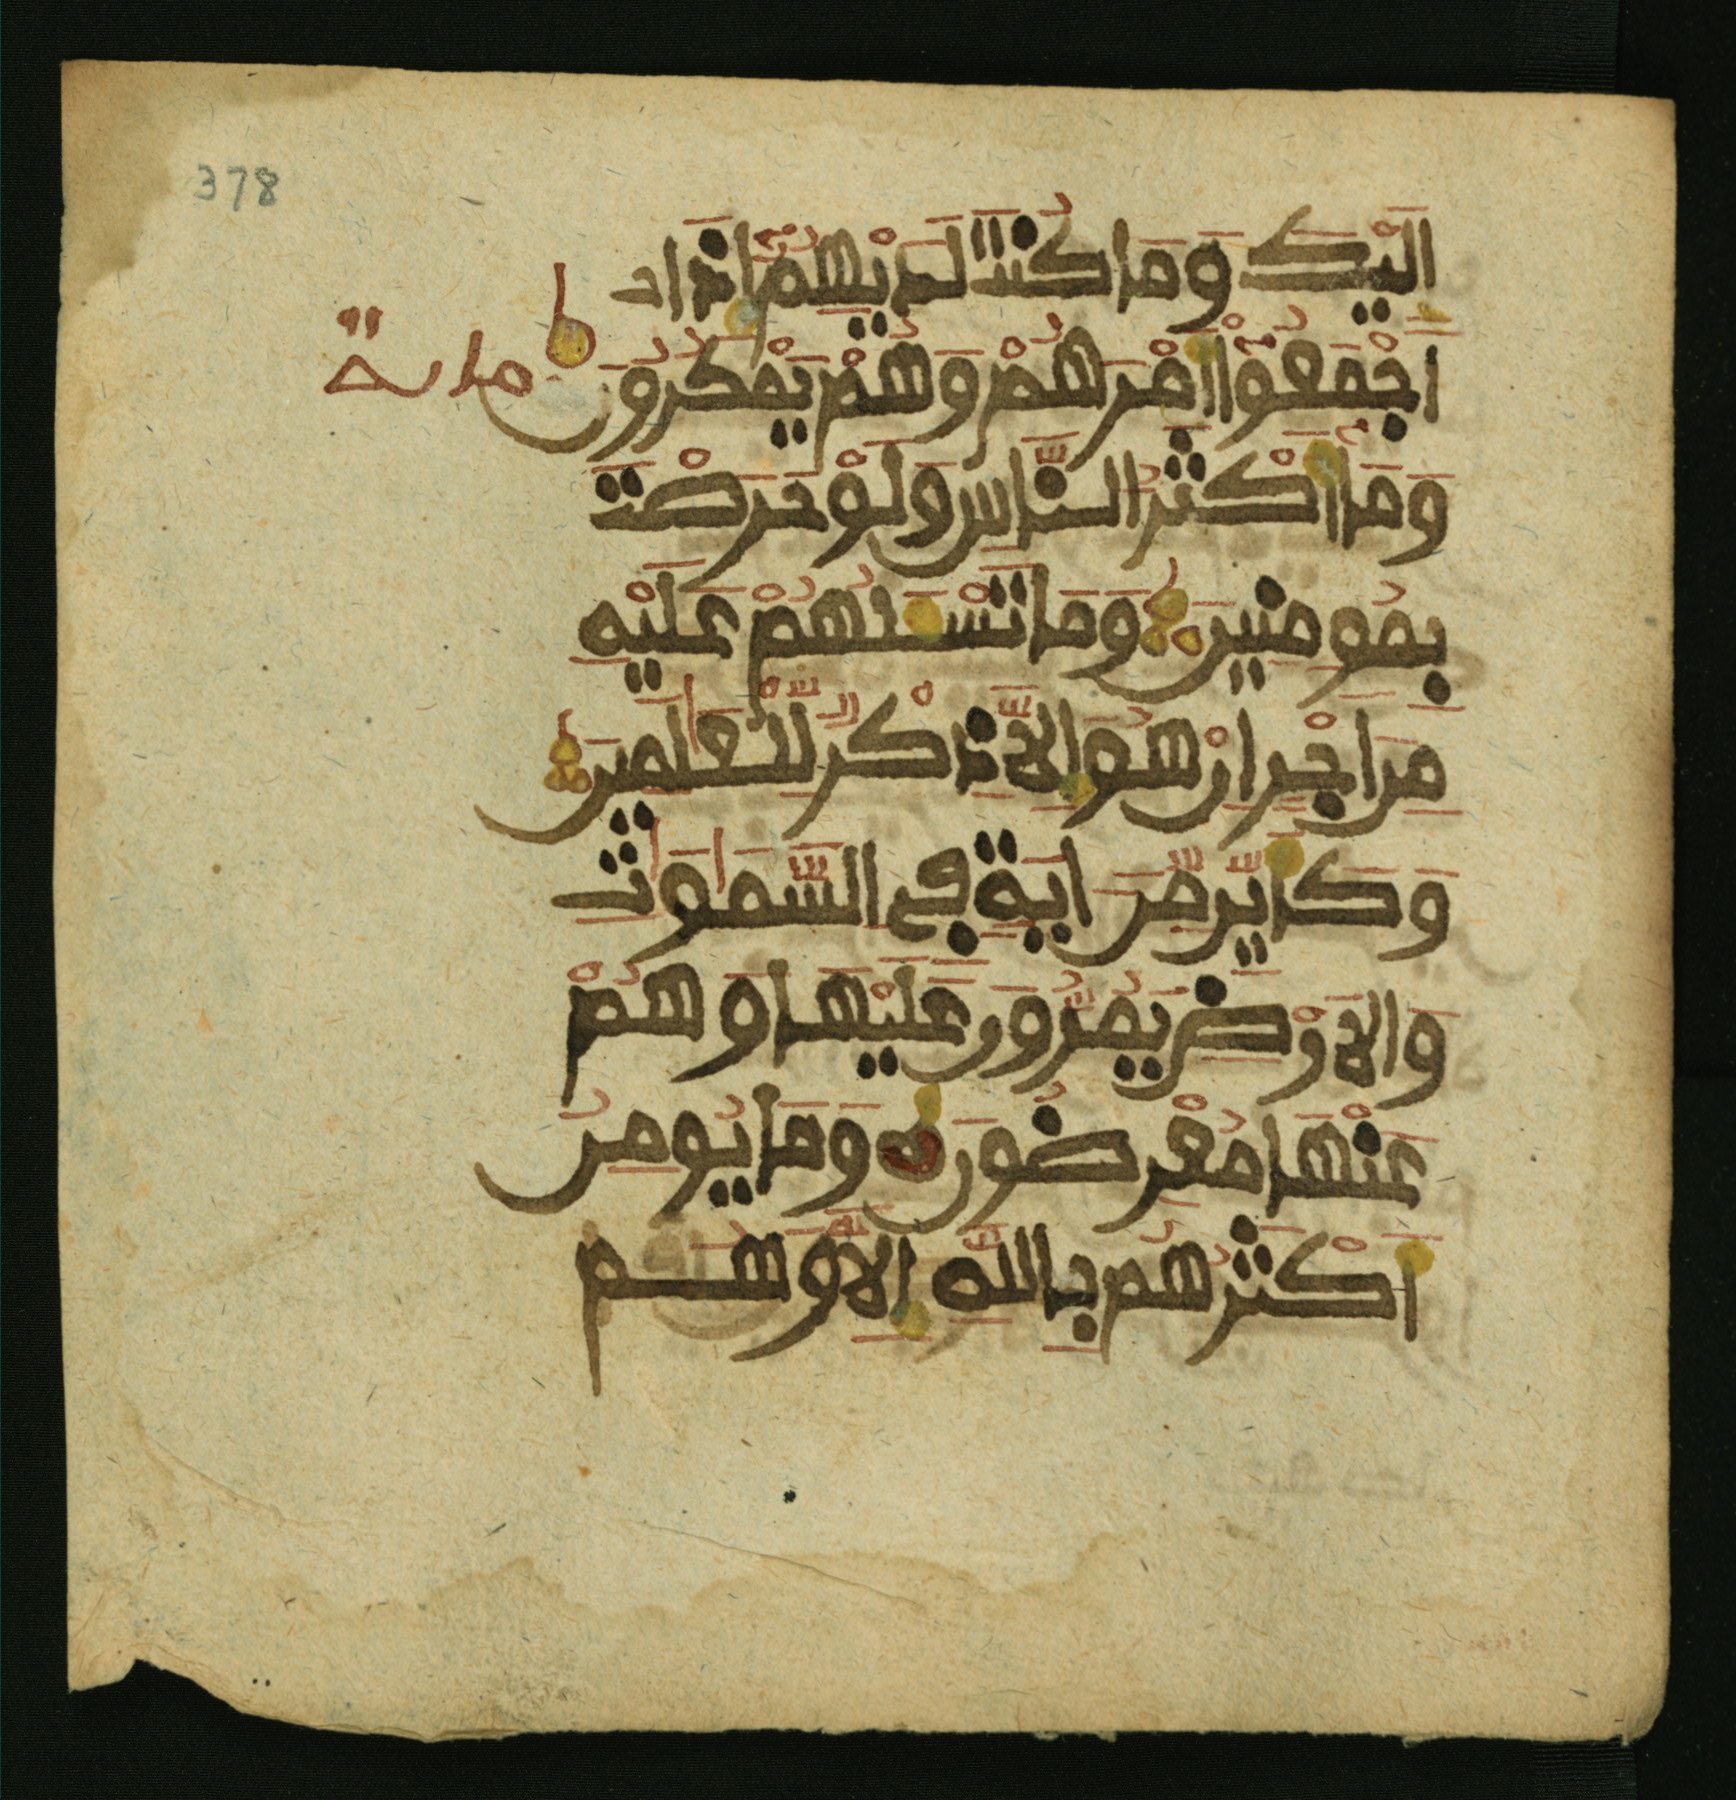 378
اليك وما كنت لديهم اذ ا
اجمعوا امرهم وهم يمكرون مائة
وما اكثر الناس ولو حرصت
بمومنين وما تسلهم عليه
من اجر ان هو الا ذكر للعلمين
وكاين من اية في السموت
والارض يمرون عليها وهم
عنها معرضون وما يومن
اكثرهم بالله الا وهم